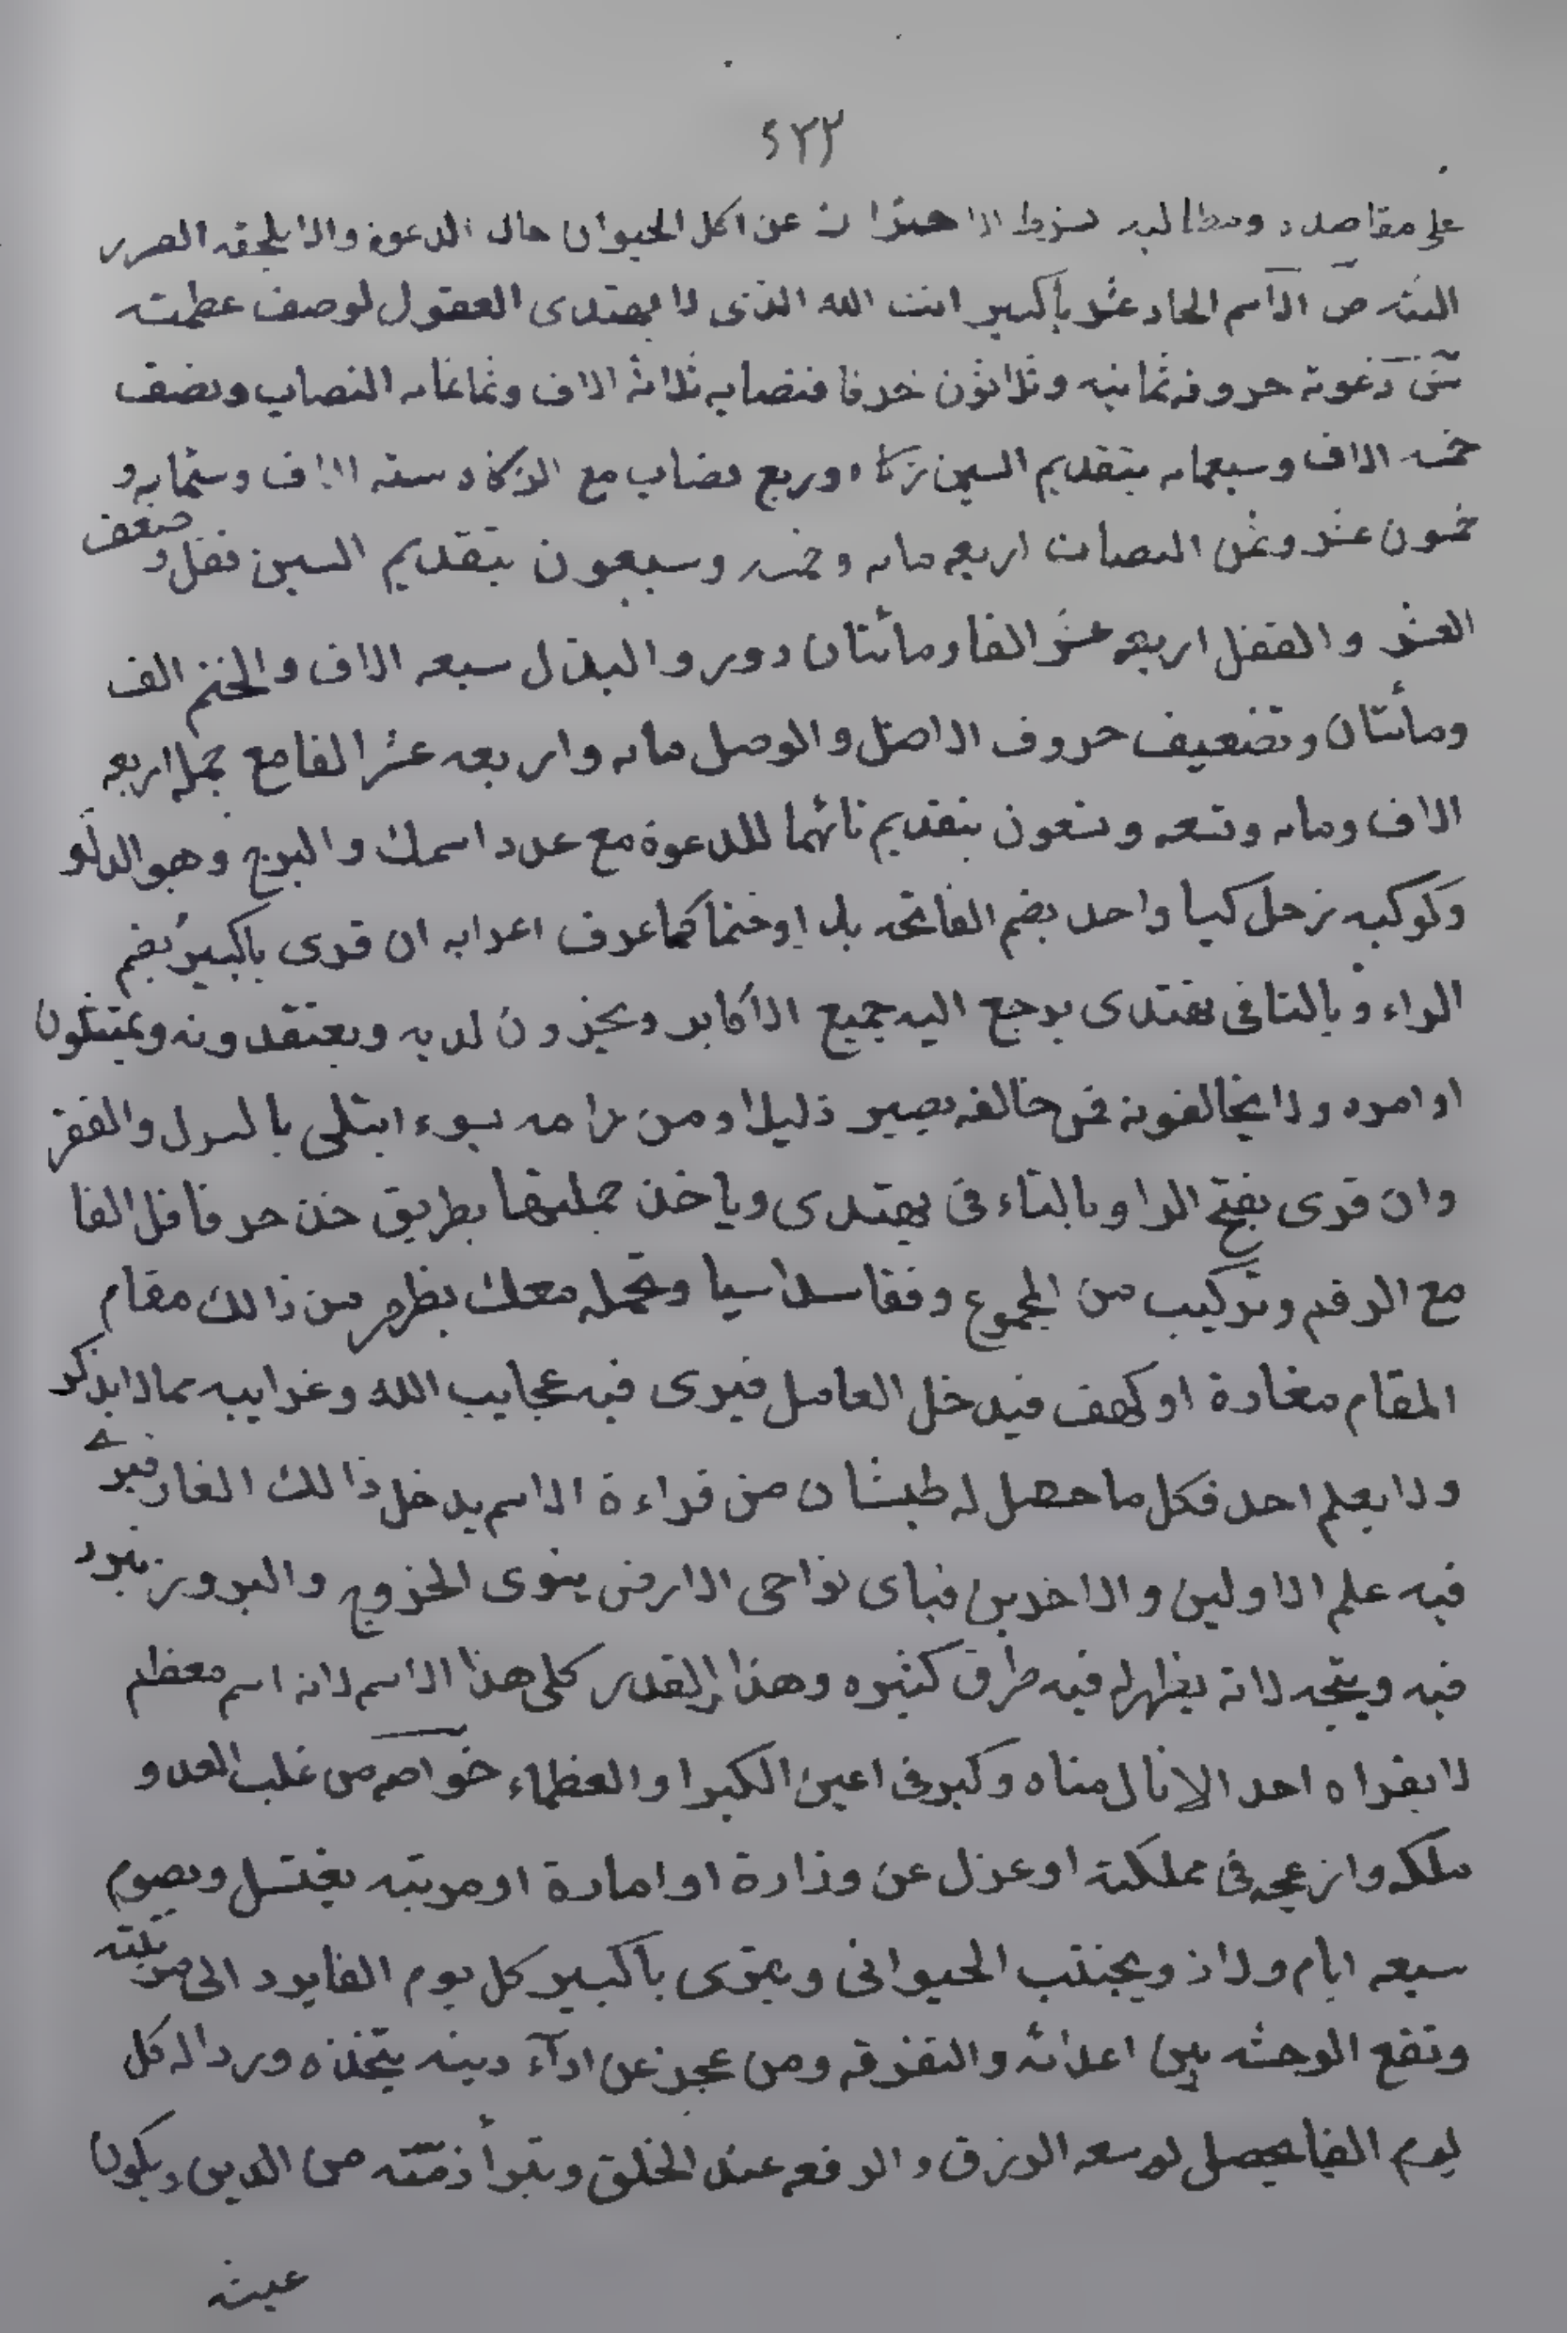 ٢٣٢
على مقاصده ومطالبه بشرط الاحتراز عن اكل الحيوان حال الدعوة والا يلحقه الضرر
البته ص الاسم الحاد عشر ياكبير انت الله الذى لا يهتدى العقول لوصف عظمته
دعوته حروفه ثمانيه وثلاثون حرفا فنصابه ثلاثة الاف وثمانمايه النصاب ونصف
خمسه الاف وسبعمايه بتقديم السين زكاه وربع نصاب مع الزكاه سته الاف وستمايه و
خمسون عشر وثمن النصاب اربعه مايه وخمسه وسبعون بتقديم السين قفل وضعف
العشر والقفل اربعه عشر الفا ومائتان دور والبذل سبعه الاف والختم الف
ومائتان وتضعيف حروف الاصل والوصل مايه واربعه عشر الفا مع جمله اربعه
الاف ومايه وتسعه وتسعون بتقديم تائهما للدعوة مع عدد اسمك والبرج وهو الدلو
وكوكبه زحل كيا واحد بضم الفاتحه بلا اوختما كما عرف اعرابه ان قرى ياكبيرُ بضم
الراء وبالتا فى تهتدى يرجع اليه جميع الاكابر ويخرون لديه ويعتقدونه ويمتثلون
اوامره ولا يخالفونه فمن خالفه يصير ذليلا ومن رامه بسوء ابتلى بالسل والفقر
وان قرى بفتح الرا وبالتاء فى يهتدى وياخذ جملتها بطريق خذ حرفا قل الفا
مع الرقم وتركيب من المجموع وفقا سداسيا وتحمله معك يظهر من ذالك مقام
المقام مغارة او كهف فيدخل العامل فيرى فيه عجايب الله وغرايبه مما لا يذكر
ولا يعلم احد فكل ما حصل له طيشان من قراءة الاسم يدخل ذالك الغار فيرى
فيه علم الاولين والاخرين فباى نواحى الارض ينوى الخروج والبروز يبرد
فيه ويتجه لانه يظهر له فيه طرق كثيره وهذا القدر كلى هذا الاسم لانه اسم معظم
لا يقراه احد الا نال مناه وكبر فى اعين الكبرا والعظماء خواصه من غلب العدو
ملكه وازعجه فى مملكته او عزل عن وزارة او امارة او مرتبه يغتسل ويصوم
سبعه ايام ولاذ ويجتنب الحيوانى ويقرى ياكبير كل يوم الفا يرد الى مرتبته
وتقع الوحشه بين اعدائه والتفرقه ومن عجز عن ادآء دينه يتخذه وردا له كل
يوم الفا يحصل له وسعه الرزق والرفعه عند الخلق وتبرأ ذمته من الدين ويكون
عينه